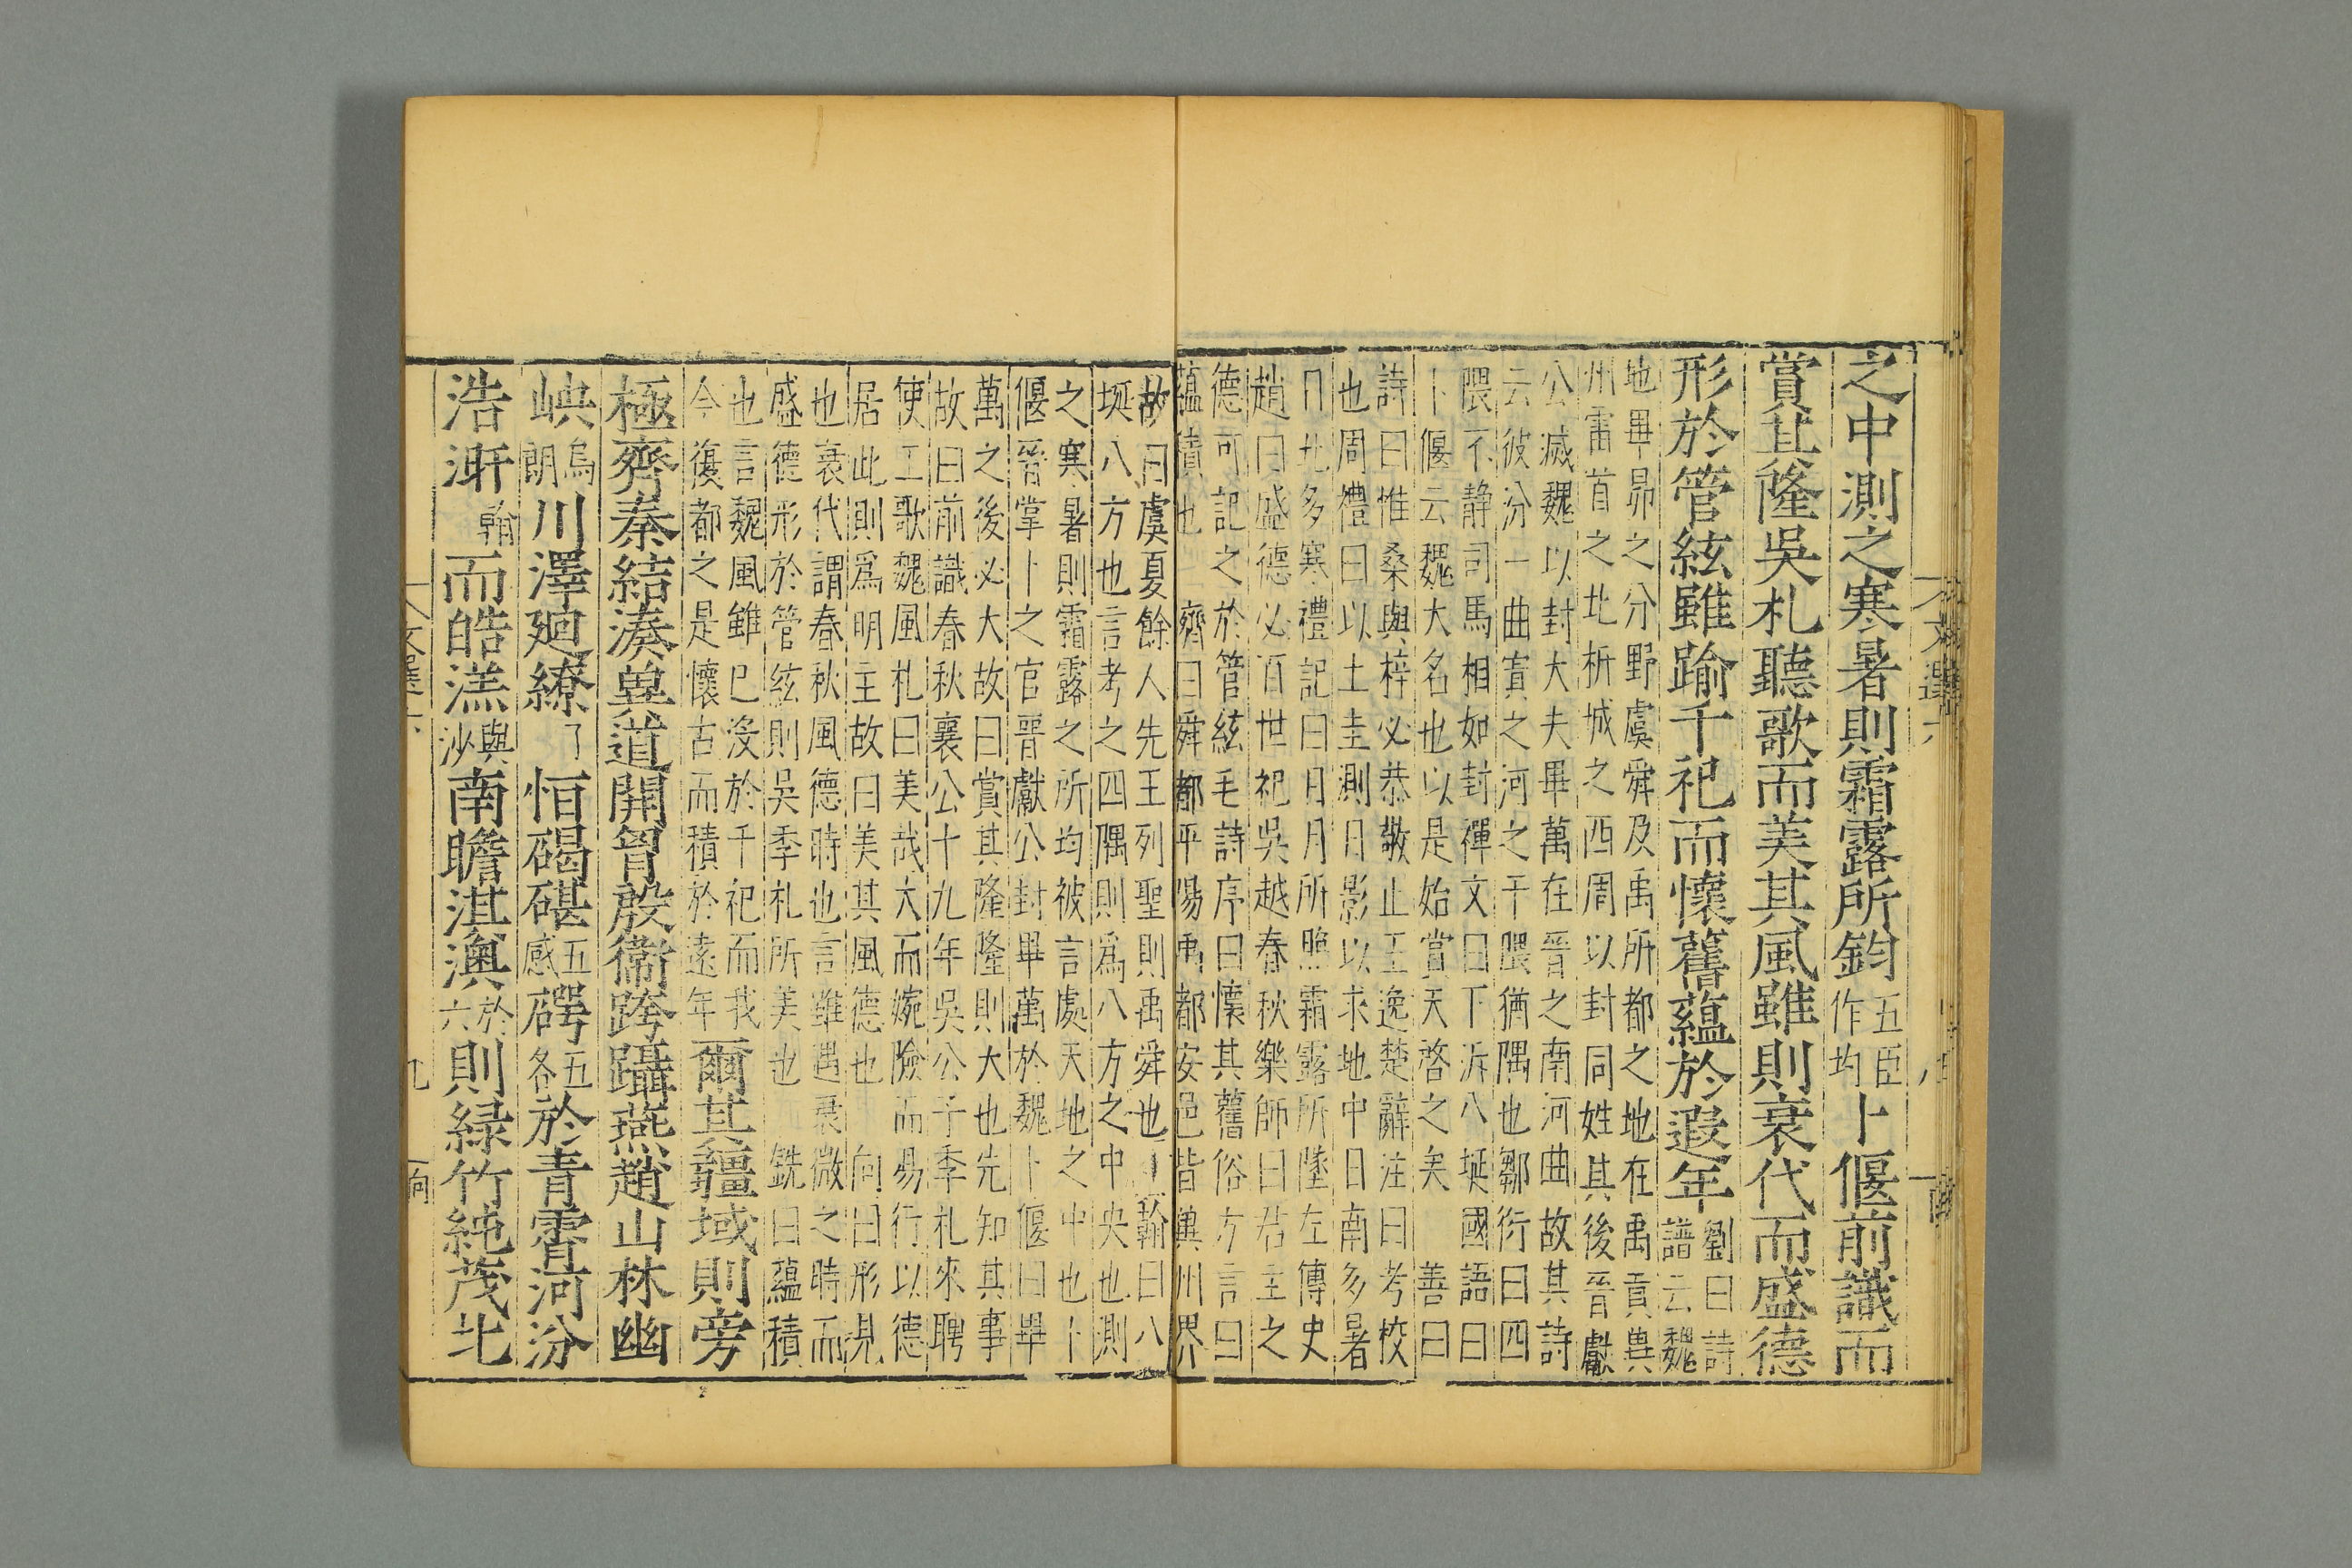 之中測之寒暑則霜露所鈞五臣作均卜偃前識而
賞其隆吳札聽歌而美其風雖則衰代而盛德
形於管絃雖踰千祀而懷舊蘊於遐年劉曰詩譜云魏
地畢昴之分野虞舜及禹所都之地在禹貢冀
州雷首之北析城之西周以封同姓其後晉獻
公滅魏以封大夫畢萬在晉之南河曲故其詩
云彼汾一曲寘之河之干隈猶隅也鄒衍曰四
隈不静司馬相如封禪文曰下泝八埏國語曰
卜偃云魏大名也以是始賞天啓之矣 善曰
詩曰惟桑與梓必恭敬止王逸楚辭注曰考校
也周禮曰以土圭測日影以求地中日南多暑
日北多寒禮記曰日月所照霜露所墜左傳史
趙曰盛德必百世祀吳越春秋樂師曰君王之
德可記之於管絃毛詩序曰懷其舊俗方言曰
蘊積也 濟曰舜都平陽禹都安邑皆冀州界
故曰虞夏餘人先王列聖則禹舜也 翰曰八
埏八方也言考之四隅則爲八方之中央也測
之寒暑則霜露之所均被言處天地之中也卜
偃晉掌卜之官晉獻公封畢萬於魏卜偃曰畢
萬之後必大故曰賞其隆隆則大也先知其事
故曰前識春秋襄公十九年吳公子季札來聘
使工歌魏風札曰美哉大而婉險而易行以德
居此則爲明主故曰美其風德也 向曰形見
也衰代謂春秋風德時也言雖遇衰微之時而
盛德形於管絃則吳季札所美也 銑曰蘊積
也言魏風雖已没於千祀而我
今復都之是懷古而積於遠年爾其疆域則旁
極齊秦結湊冀道開胷殷衞跨躡燕趙山林幽
岟烏朗川澤廻繚了恒碣碪五感礘五各於青霄河汾
浩汧翰而皓溔與沙南瞻淇澳於六則緑竹純茂北
文選六
九